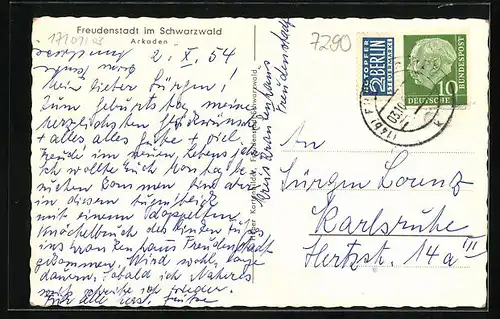 Freudenstadt im Schwarzwald
Arkaden
2. X. 54
Mein lieber Jürgen!
Zum Geburtstag meine
herzlichsten Glückwünsche
+ alles alles Gute + viel
Freude im neuen Lebensjahr.
Ich wollte Euch Montag be-
suchen kommen und bin
in diesem
mit einem doppelten
Knöchelbruch des linken Fußes
ins Krankenhaus Freudenstadt
gekommen. Wird wohl lange
dauern, sobald ich Näheres
weiß schreibe ich wieder.
Für alle herzl. Grüße
Krankenhaus
Freudenstadt
7290
NOTOPFER
2 BERLIN
STEUERMARKE
10
DEUTSCHE
BUNDESPOST
An
Jürgen
Karlsruhe
Hertzstr. 14a III